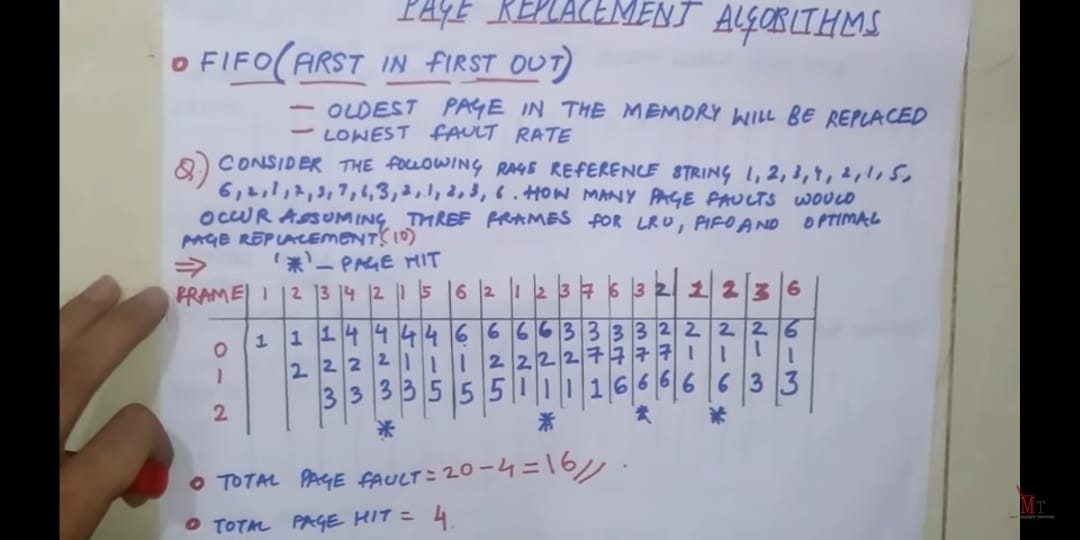 PAGE REPLACEMENT ALGORITHMS
FIFO (FIRST IN FIRST OUT)
— OLDEST PAGE IN THE MEMORY WILL BE REPLACED
— LOWEST FAULT RATE
Q.) CONSIDER THE FOLLOWING PAGE REFERENCE STRING 1, 2, 3, 4, 2, 1, 5,
6, 2, 1, 2, 3, 7, 6, 3, 2, 1, 2, 3, 6. HOW MANY PAGE FAULTS WOULD
OCCUR ASSUMING THREE FRAMES FOR LRU, FIFO AND OPTIMAL
PAGE REPLACEMENT? (10)
⇒ '*' – PAGE HIT
FRAME 1 2 3 4 2 1 5 6 2 1 2 3 7 6 3 2 1 2 3 6
0 1 1 1 4 4 4 4 6 6 6 6 3 3 3 3 2 2 2 2 6
1 2 2 2 2 1 1 1 2 2 2 2 7 7 7 7 1 1 1 1
2 3 3 3 3 5 5 5 1 1 1 1 6 6 6 6 6 3 3
* * * *
TOTAL PAGE FAULT = 20 - 4 = 16 //
TOTAL PAGE HIT = 4
MT